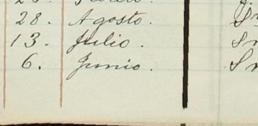 28. Agosto.
13. Julio.
6. Junio.